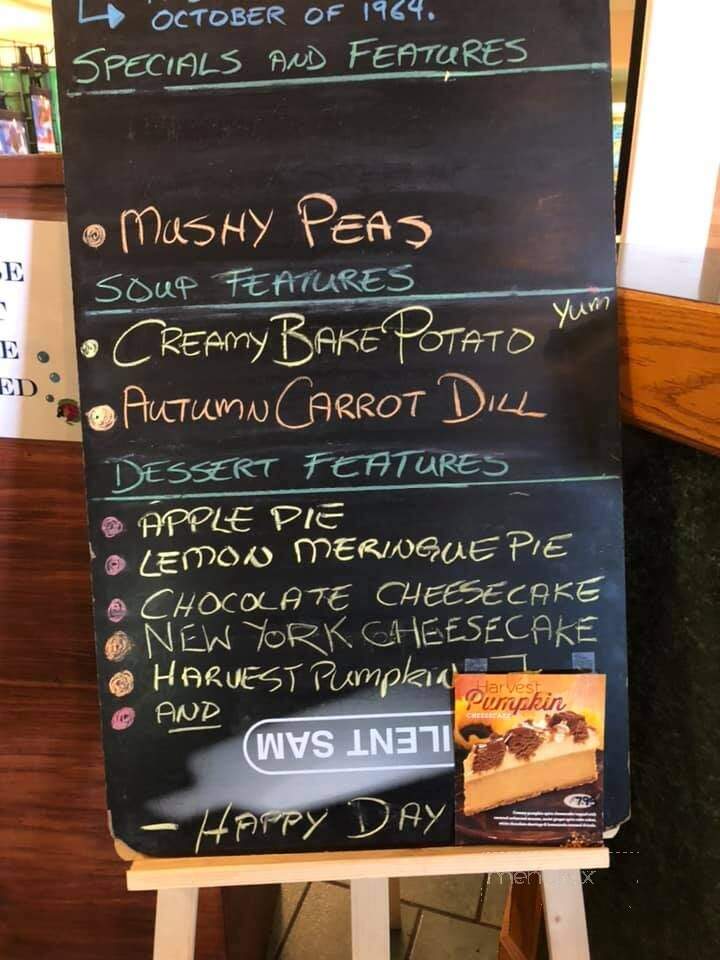 OCTOBER OF 1964.
SPECIALS AND FEATURES
MUSHY PEAS
SOUP FEATURES
CREAMY BAKE POTATO Yum
AUTUMN CARROT DILL
DESSERT FEATURES
APPLE PIE
LEMON MERINGUE PIE
CHOCOLATE CHEESECAKE
NEW YORK CHEESECAKE
HARVEST PUMPKIN
AND
ILENT SAM
Harvest
Pumpkin
CHEESECAKE
- HAPPY DAY
E
E
ED